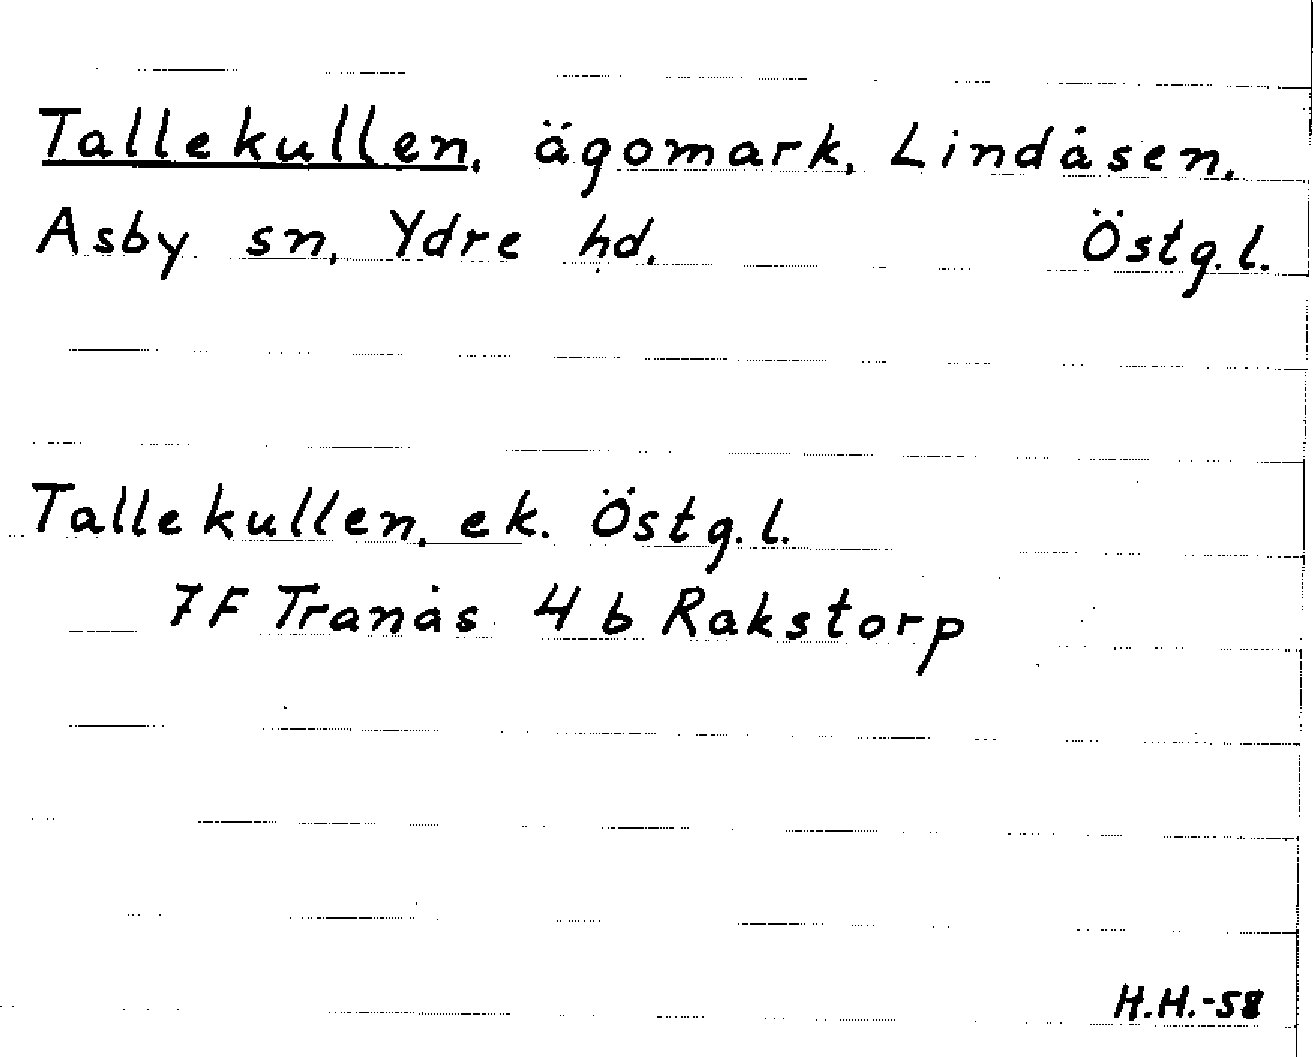 Tallekullen, ägomark, Lindåsen,
Asby sn, Ydre hd. Östg.l.
Tallekullen, ek. Östg.l.
7F Tranås 4b Rakstorp
H.H.-58